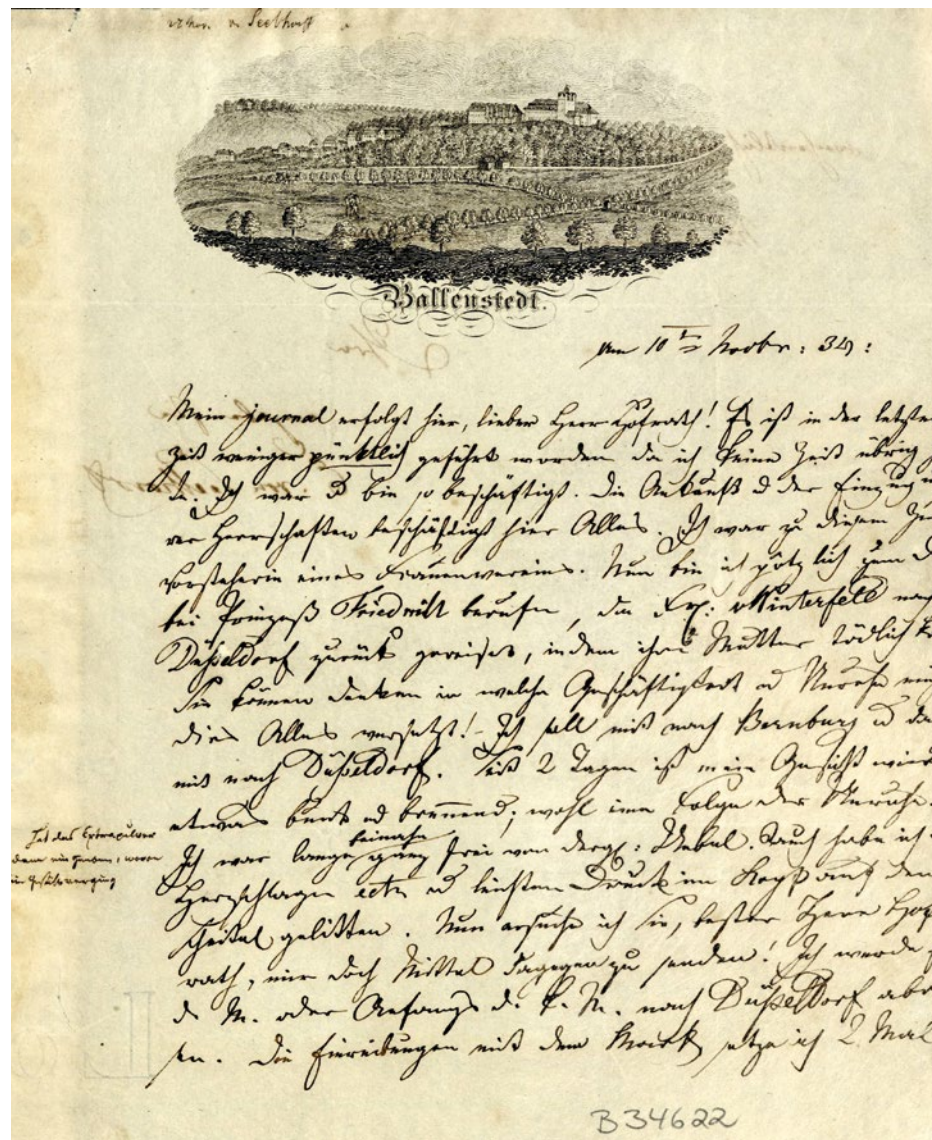 v. Seelhorst
Ballenstedt.
am 10ten Novbr: 34:
Mein journal erfolgt hier, lieber Herr Hofrath! Es ist in der letzten
Zeit weniger pünktlich geführt worden da ich keine Zeit übrig
Ich war u bin so beschäftigt. Die Ankunft u der Einzug
rer Herrschaften beschäftigt hier Alles. Ich war zu diesem
Vorsteherin eines Frauenvereins. Nun bin ich plötzlich zum
bei Prinzeß Friedrich berufen, da Frl: v Winterfeld nach
Düßeldorf zurück gereiset, indem ihre Mutter tödlich
Sie können denken in welche Geschäftigkeit u Unruhe
dies Alles versetzt! - Ich soll mit nach Bernburg u
mit nach Düßeldorf. Seit 2 Tagen ist mein Gesicht wieder
etwas bunt u brennend; wohl eine Folge der Unruhe.
Ich war lange beinahe ganz frei von dergl: Uebel. Auch habe ich
Hat das
Herzschlagen ectr u leichten Druck im Kopf auf dem
Scheitel gelitten. Nun ersuche ich Sie, bester Herr Hof
rath, mir doch Mittel dagegen zu senden! Ich werde
d. M. oder Anfangs d. k. M. nach Düßeldorf abrei
sen. Die Einreibungen mit dem setze ich 2 Mal
B34622